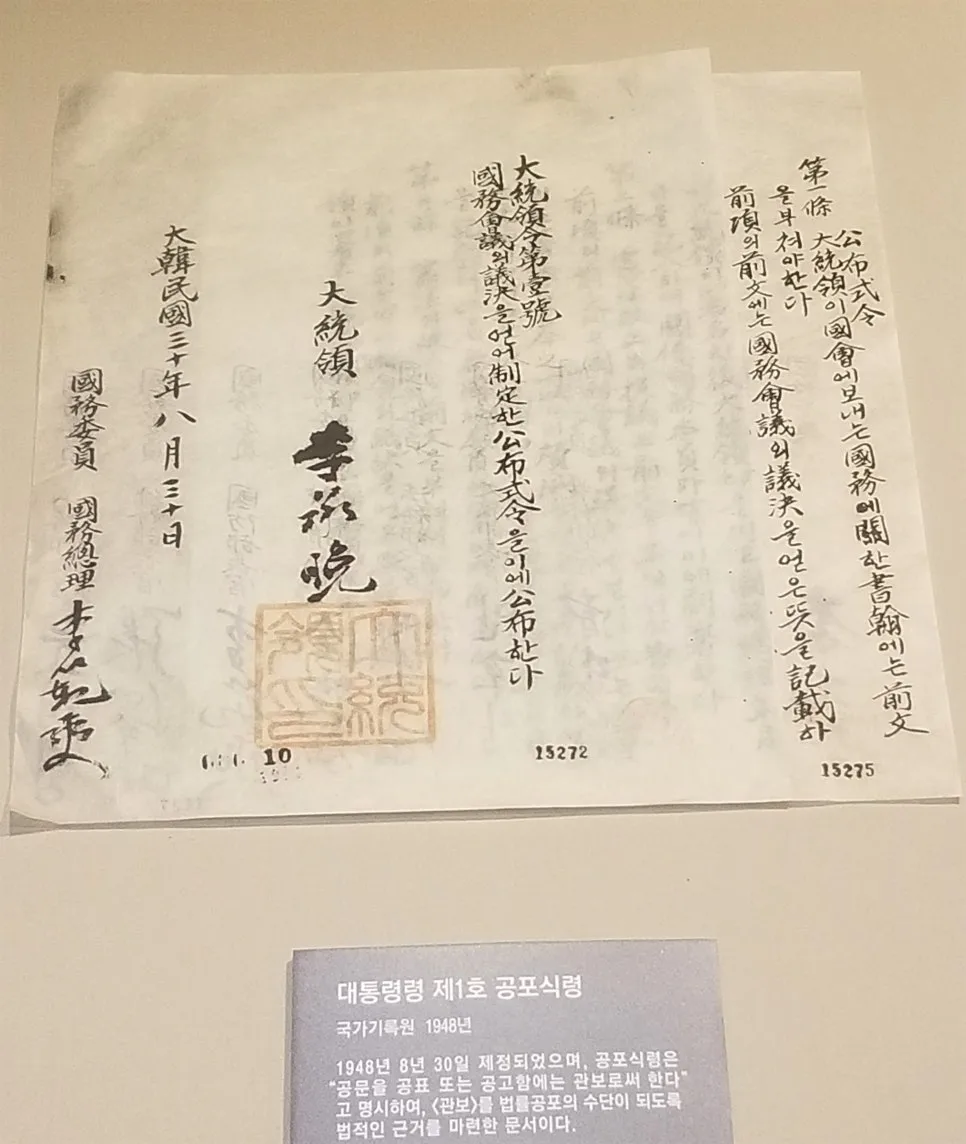 公布式令
第一條 大統領이國會에보내는國務에關한書翰에는前文
을부쳐야한다
前項의前文에는國務會議의議決을얻은뜻을記載하
大統領令第壹號
國務會議의議決을얻어制定한公布式令을이에公布한다
大統領 李承晩
大韓民國三十年八月三十日
國務委員 國務總理 李範奭
大統領印
10
15272
15275
대통령령 제1호 공포식령
국가기록원 1948년
1948년 8년 30일 제정되었으며, 공포식령은
“공문을 공표 또는 공고함에는 관보로써 한다”
고 명시하여, <관보>를 법률공포의 수단이 되도록
법적인 근거를 마련한 문서이다.